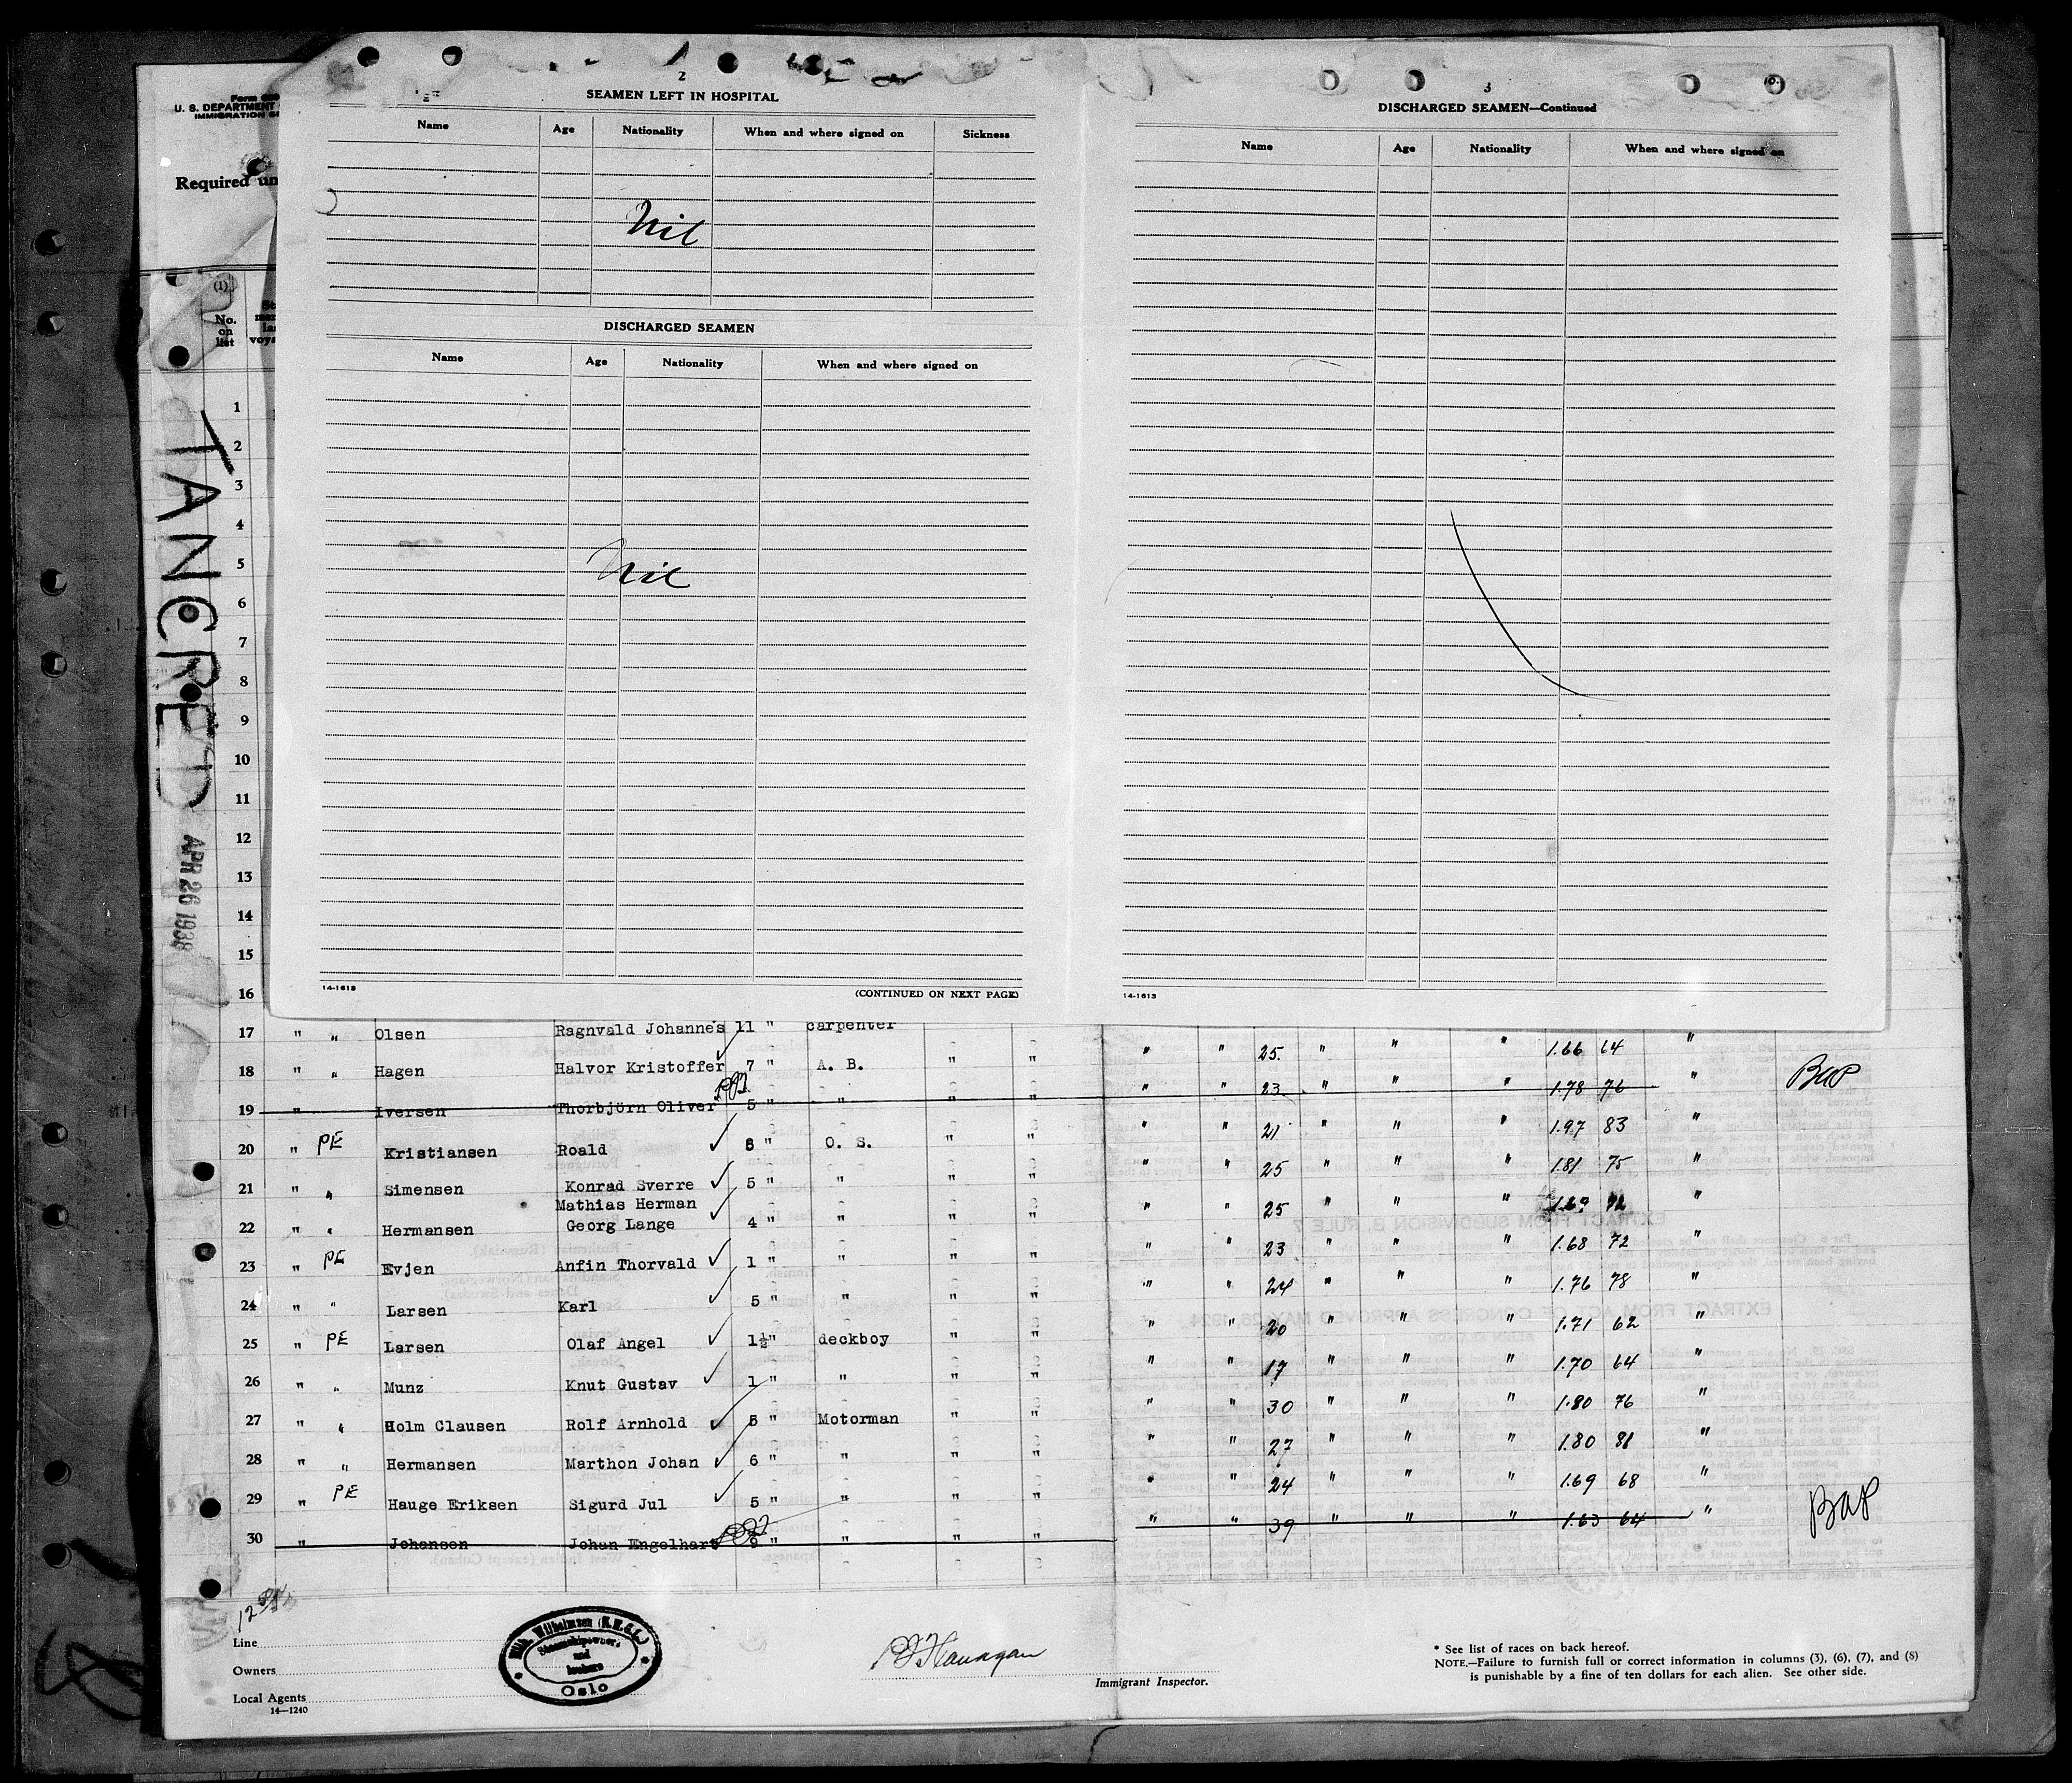 2
SEAMEN LEFT IN HOSPITAL
Name Age Nationality When and where signed on Sickness
Nil
DISCHARGED SEAMEN
Name Age Nationality When and where signed on
Nil
14-1613 (CONTINUED ON NEXT PAGE)
3
DISCHARGED SEAMEN—Continued
Name Age Nationality When and where signed on
14-1613
U. S. DEPARTMENT
IMMIGRATION
Required un
(1)
No.
on
list
TANCRED
APR 26 1938
1
2
3
4
5
6
7
8
9
10
11
12
13
14
15
16
17 " " Olsen Ragnvald Johannes 11 " carpenter
18 " " Hagen Halvor Kristoffer 7 " A. B. " " " " 25 " " " 1.66 64 "
19 " Iversen Thorbjörn Oliver 5 " " " " " 23 " " " 1.78 76 "
20 " PE Kristiansen Roald 8 " O. S. " " " " 21 " " " 1.97 83 "
21 " " Simensen Konrad Sverre 5 " " " " " " 25 " " " 1.81 75 "
22 " " Hermansen Mathias Herman
Georg Lange 4 " " " " " " 25 " " " "
23 " PE Evjen Anfin Thorvald 1 " " " " " " 23 " " " 1.68 72 "
24 " " Larsen Karl 5 " " " " " " 24 " " " 1.76 78 "
25 " PE Larsen Olaf Angel 1½" deckboy " " " " 20 " " " 1.71 62 "
26 " " Munz Knut Gustav 1 " " " " " " 17 " " " 1.70 64 "
27 " " Holm Clausen Rolf Arnhold 5 " Motorman " " " " 30 " " " 1.80 76 "
28 " " Hermansen Marthon Johan 6 " " " " " " 27 " " " 1.80 81 "
29 " PE Hauge Eriksen Sigurd Jul 5 " " " " " " 24 " " " 1.69 68 "
30 " Johansen Johan Engelhart 9 " " " " " " 39 " " " 1.63 64 "
Line
Owners
Local Agents
14—1240
Wilh. Wilhelmsen
Steamshipowners
and
brokers
Oslo
Flanagan
Immigrant Inspector.
* See list of races on back hereof.
NOTE.—Failure to furnish full or correct information in columns (3), (6), (7), and (8)
is punishable by a fine of ten dollars for each alien. See other side.